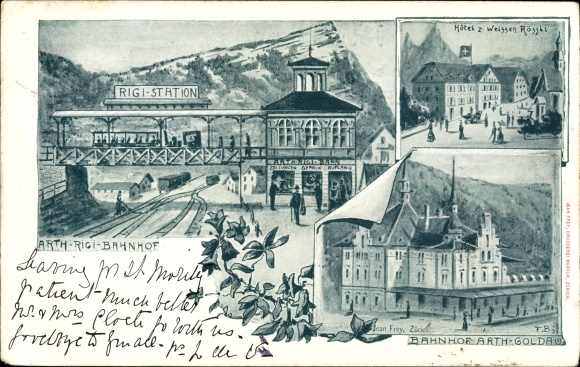 Hôtel z. Weissen Rössli
RIGI-STATION
ARTH-RIGI-BAHN
ZEITUNGEN GEPÄCK AUFGANG
ARTH-RIGI-BAHNHOF
Jean Frey, Zürich.
F.B.
BAHNHOF ARTH-GOLDAU
JEAN FREY, ZÜRICH.
Leaving for St Moritz
patient much better
Mr. & Mrs go with us.
goodbye to